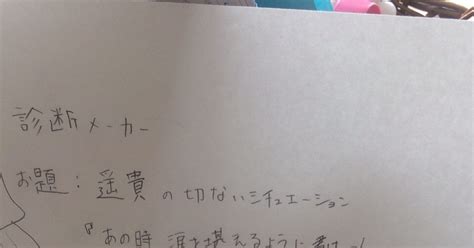 診断メーカー
お題：遥貴の切ないシチュエーション
『あの時 涙を堪えるように